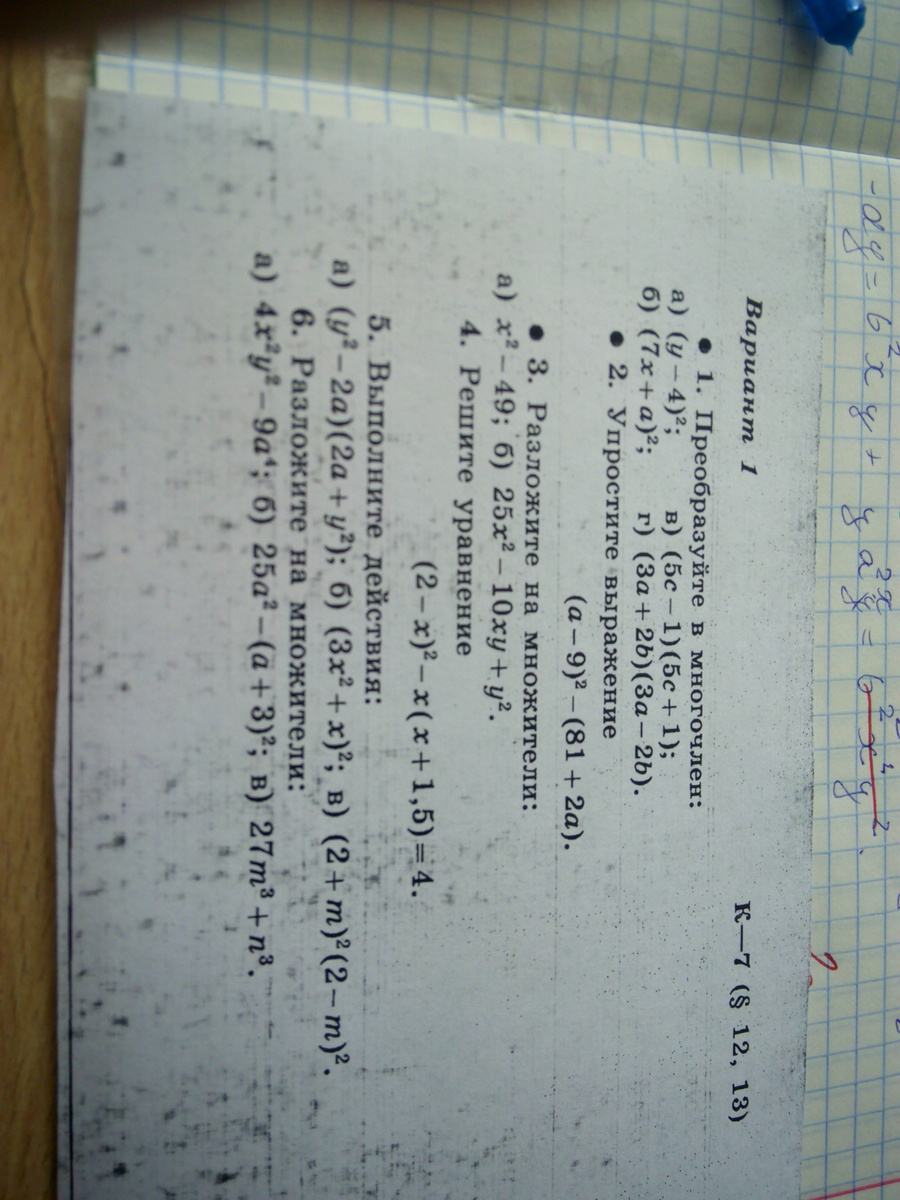 -dy = b²xy + ya²y = b²x⁴y².
Вариант 1 К—7 (§ 12, 13)
● 1. Преобразуйте в многочлен:
а) (y − 4)²; в) (5c − 1)(5c + 1);
б) (7x + a)²; г) (3a + 2b)(3a − 2b).
● 2. Упростите выражение
(a − 9)² − (81 + 2a).
● 3. Разложите на множители:
а) x² − 49; б) 25x² − 10xy + y².
4. Решите уравнение
(2 − x)² − x(x + 1,5) = 4.
5. Выполните действия:
а) (y² − 2a)(2a + y²); б) (3x² + x)²; в) (2 + m)²(2 − m)².
6. Разложите на множители:
а) 4x²y² − 9a⁴; б) 25a² − (a + 3)²; в) 27m³ + n³.